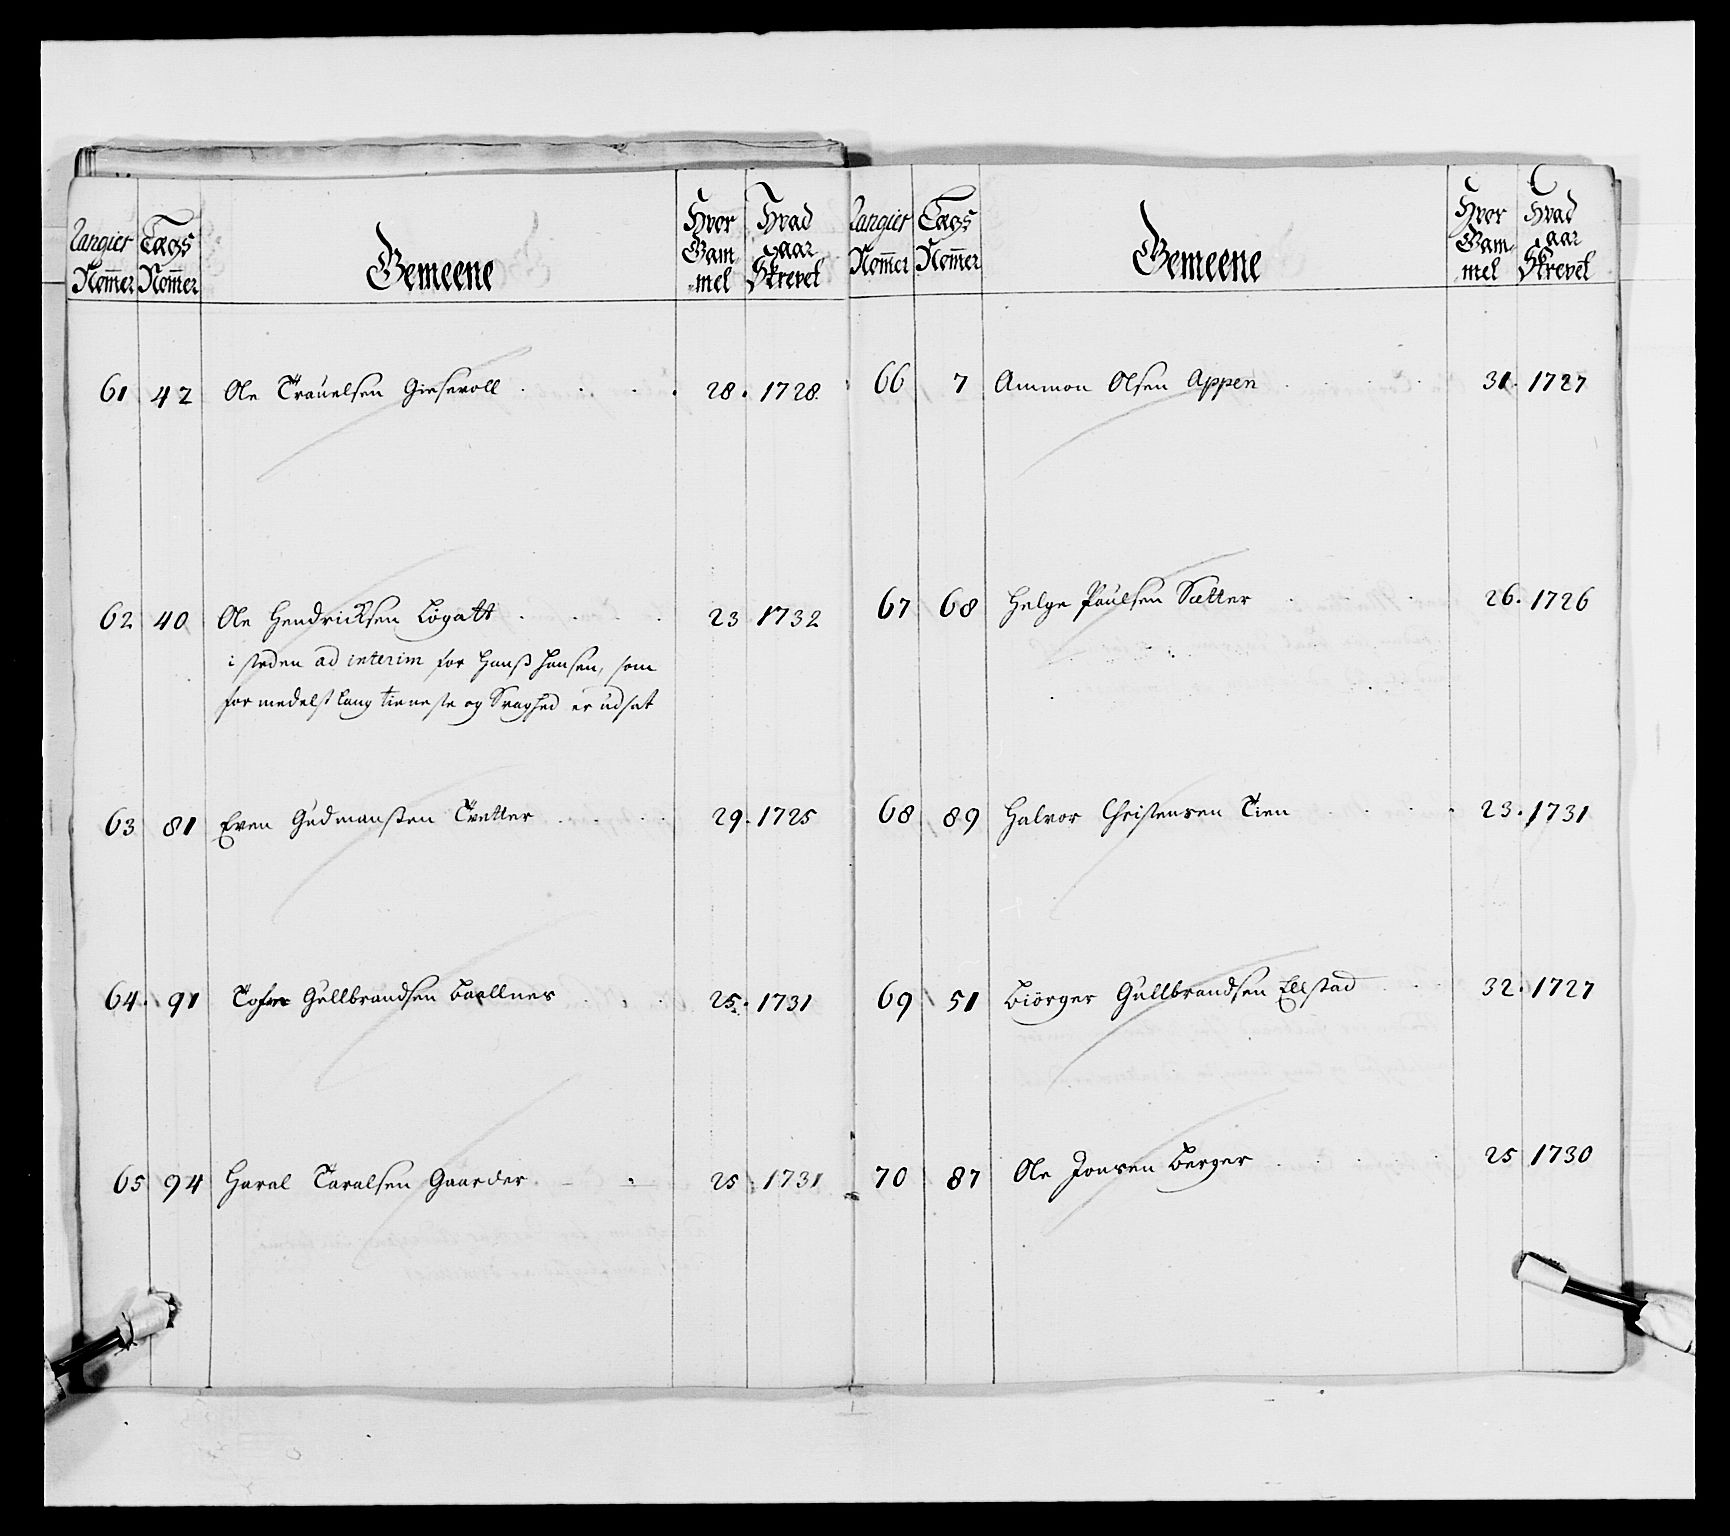 Rangier Nom̄er | Lægs Nom̄er | Gemeene | Hvor Gam̄mel | Hvad aar Skrevet
61 | 42 | Ole Trauelsen Giesevoll | 28. | 1728.
62 | 40 | Ole Hendricksen Løgatt | 23 | 1732
i steden ad interim for Hanß Hansen, som
formedelst lang tieneste og Svaghed er udsat
63 | 81 | Even Gudmansten Tretter | 29. | 1725
64. | 91 | Gullbrandsen Baallnes | 25. | 1731
65 | 94 | Haral Taralsen Gaarder | 25 | 1731
Rangier Nom̄er | Lægs Nom̄er | Gemeene | Hvor Gam̄mel | Hvad aar Skrevet
66 | 7 | Ammon Olsen Appen | 31. | 1727
67 | 68 | Helge Paulsen Sætter | 26. | 1726
68 | 89 | Halvor Christensen Tien | 23. | 1731
69 | 51 | Biørger Gullbrandsen Ellstad | 32. | 1727
70 | 87 | Ole Jonsen Berger | 25 | 1730